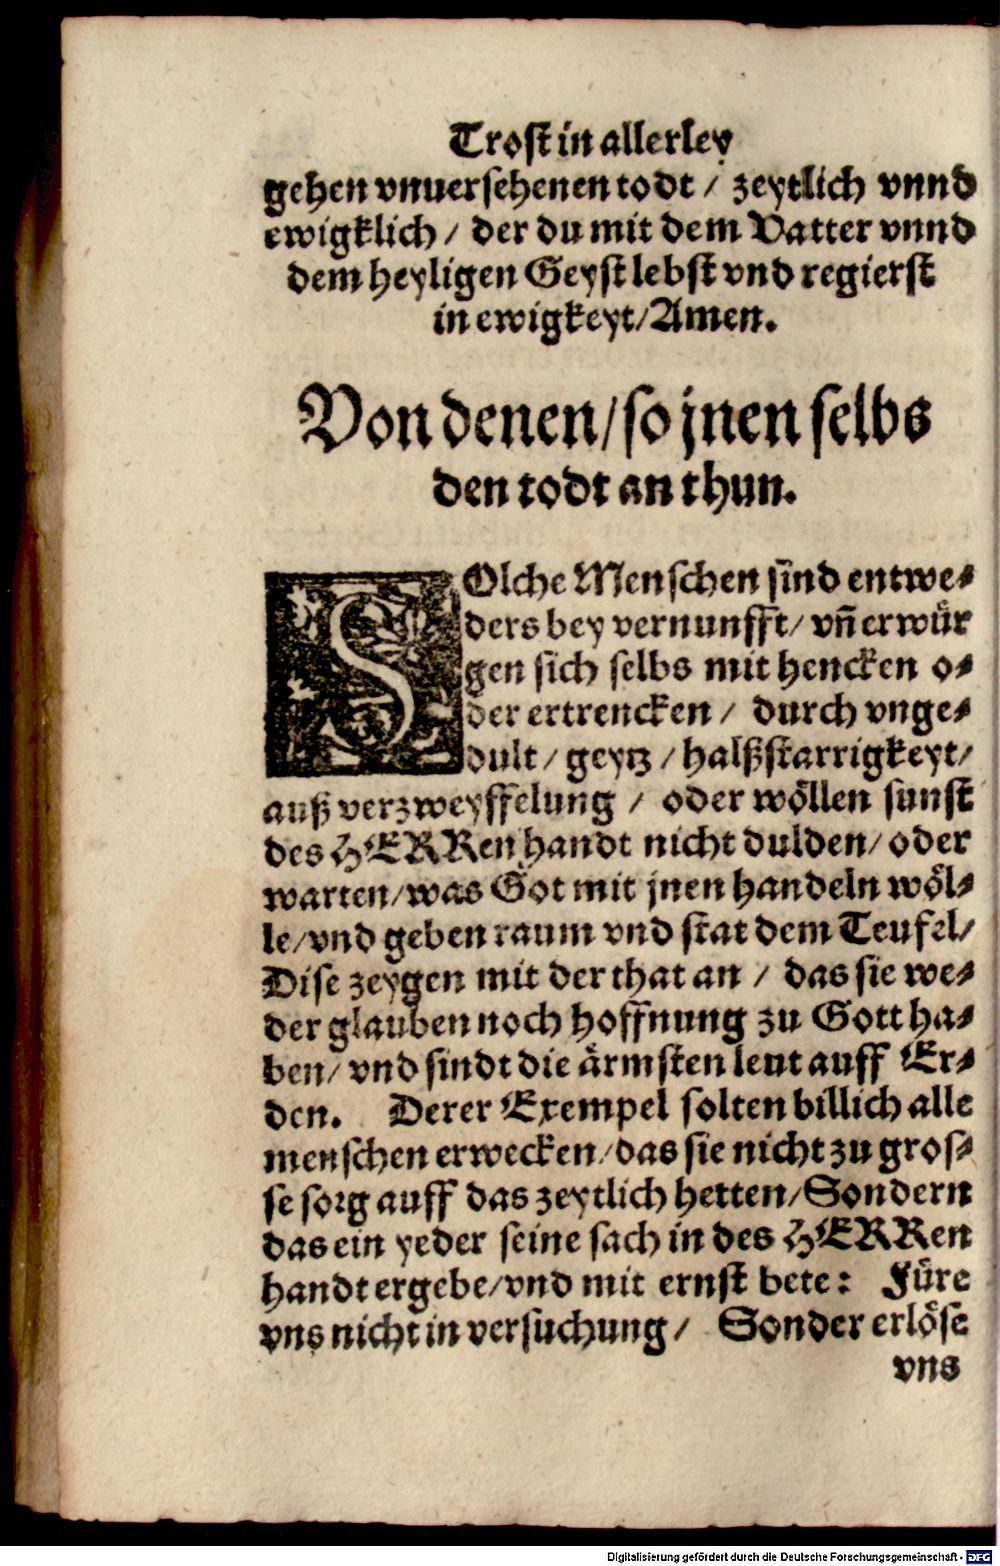 Trost in allerley
gehen vnuersehenen todt / zeytlich vnnd
ewigklich / der du mit dem Vatter vnnd
dem heyligen Geyst lebst vnd regierst
in ewigkeyt / Amen.
Von denen / so jnen selbs
den todt an thun.
SOlche Menschen sind entwe⸗
ders bey vernunfft / vñ erwür
gen sich selbs mit hencken o⸗
der ertrencken / durch vnge⸗
dult / geytz / halßstarrigkeyt /
auß verzweyffelung / oder wöllen sunst
des HERRen handt nicht dulden / oder
warten / was Got mit jnen handeln wöl⸗
le / vnd geben raum vnd stat dem Teufel /
Dise zeygen mit der that an / das sie we⸗
der glauben noch hoffnung zu Gott ha⸗
ben / vnd sindt die ärmsten leut auff Er⸗
den. Derer Exempel solten billich alle
menschen erwecken / das sie nicht zu gros⸗
se sorg auff das zeytlich hetten / Sondern
das ein yeder seine sach in des HERRen
handt ergebe / vnd mit ernst bete: Füre
vns nicht in versuchung / Sonder erlöse
vns
Digitalisierung gefördert durch die Deutsche Forschungsgemeinschaft - DFG